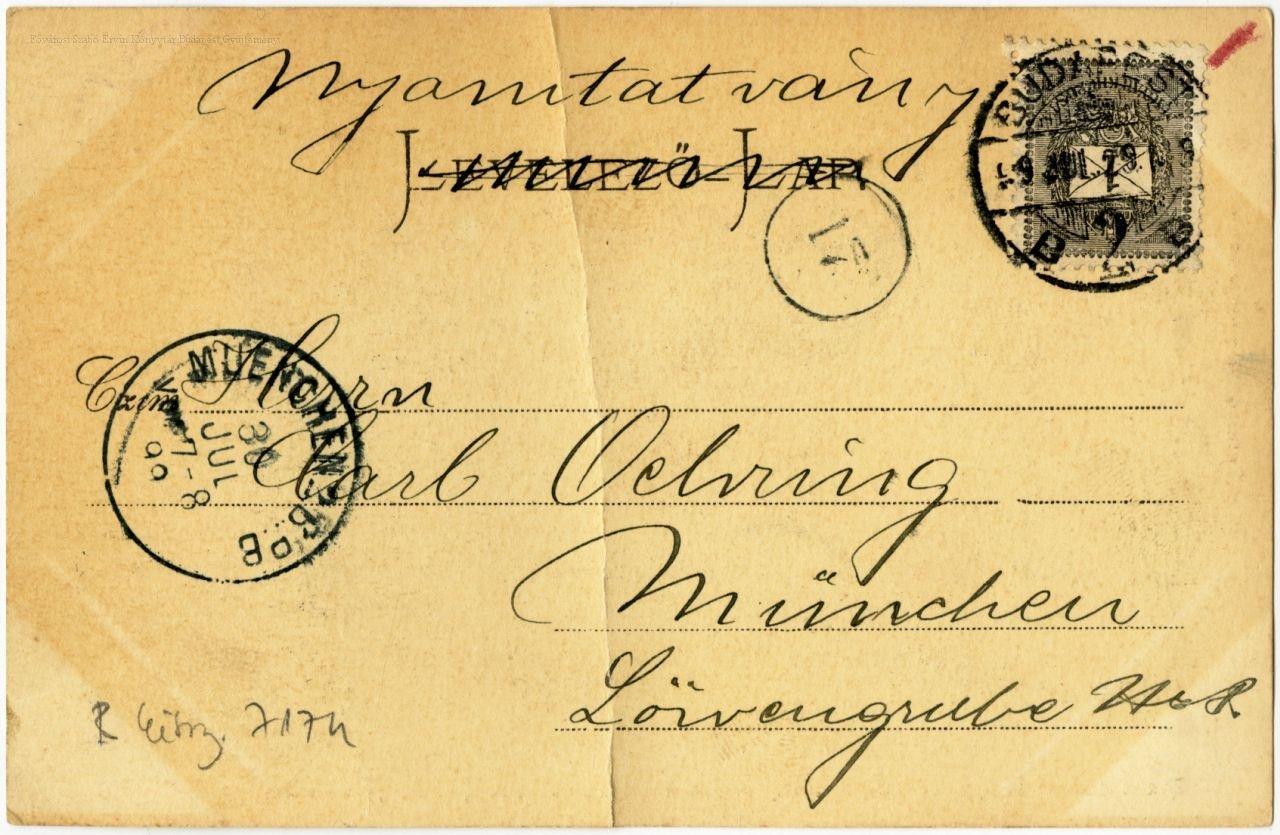 Fővárosi Szabó Ervin Könyvtár Budapest Gyűjtemény
Nyomtatvány
LEVELEZŐ-LAP.
BUDAPEST
9 JUL. 29
17
Czim Herrn
Carl Oehring
München
Löwengrube
MUENCHEN
30
JUL
7-8
99
B.P.B
7174